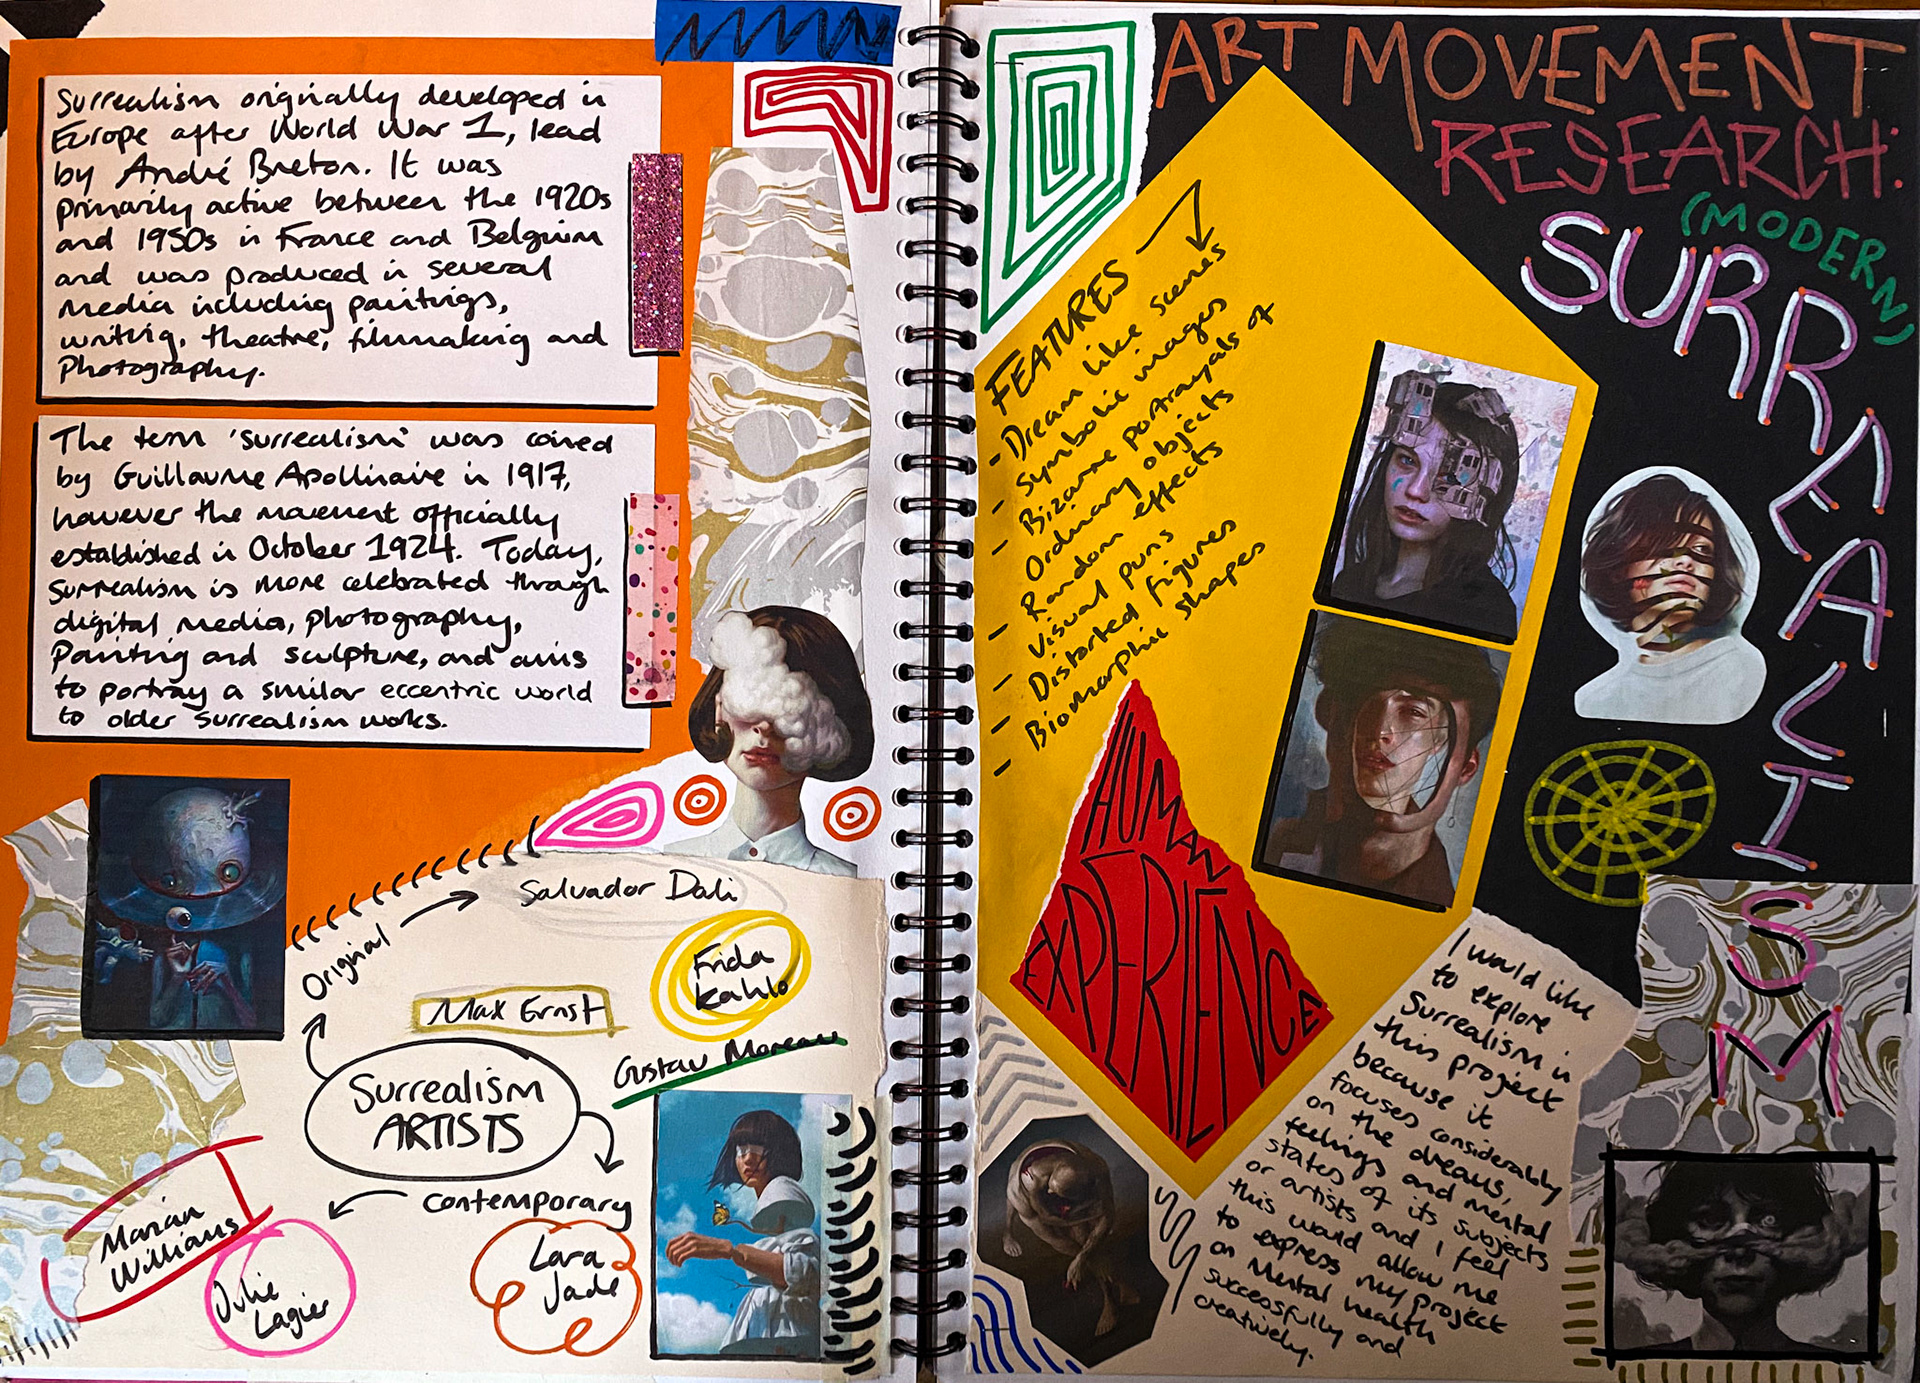 Surrealism originally developed in
Europe after World War 1, lead
by André Breton. It was
primarily active between the 1920s
and 1950s in France and Belgium
and was produced in several
media including paintings,
writing, theatre, filmmaking and
Photography.
The term 'surrealism' was coined
by Guillaume Apollinaire in 1917,
however the movement officially
established in October 1924. Today,
surrealism is more celebrated through
digital media, photography,
Painting and sculpture, and aims
to portray a similar eccentric world
to older surrealism works.
Original
Salvador Dali
Max Ernst
Frida
Kahlo
Gustav Moreau
Surrealism
ARTISTS
Contemporary
Marian
Williams
Julie
Lagier
Lara
Jade
ART MOVEMENT
RESEARCH:
(MODERN)
SURREALISM
FEATURES
- Dream like scenes
- Symbolic images
- Bizarre portrayals of
Ordinary objects
- Random effects
- Visual puns
- Distorted figures
- Biomorphic shapes
HUMAN
EXPERIENCE
I would like
to explore
Surrealism in
this project
because it
focuses considerably
on the dreams,
feelings and mental
states of its subjects
or artists and I feel
this would allow me
to express my project
on Mental health
successfully and
creatively.